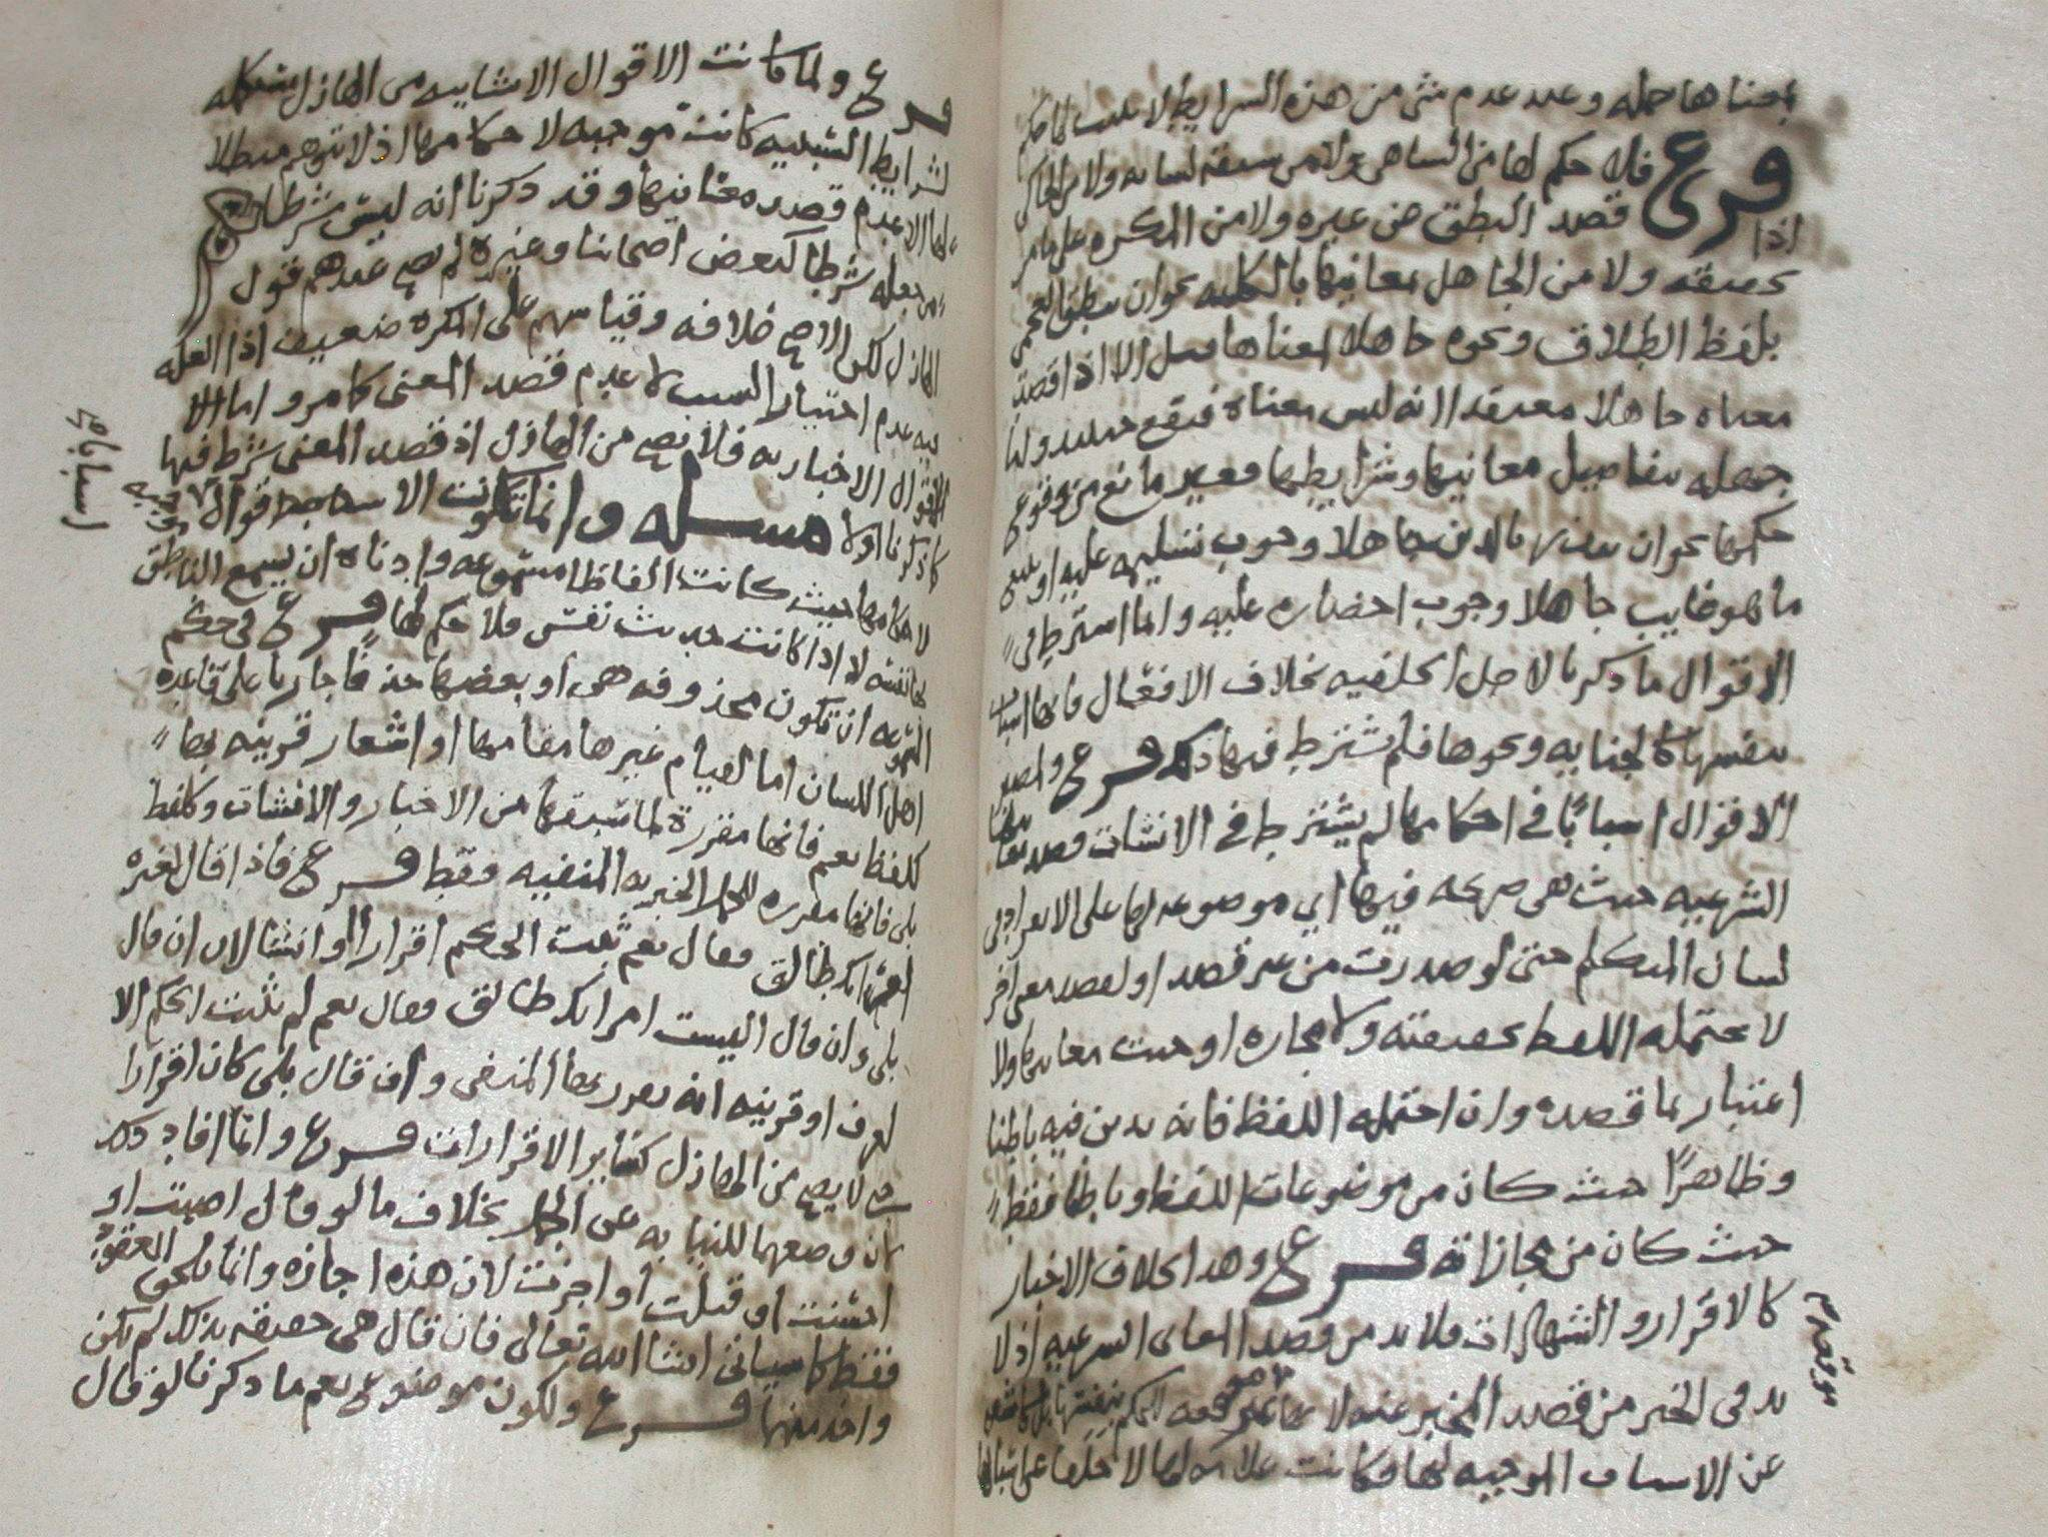 بمعناها جمله وعند عدم شي من هذه الشرايط لا يثبت لها حكم
فرع فلا حكم لها من الساهي ولا من سبقه لسانه ولا من الحاكي
اذا قصد النطق عن غيره ولا من المكره على ما مر
تحقيقه ولا من الجاهل بمعانيها بالكليه نحو ان ينطق العجمي
بلفظ الطلاق ونحوه جاهلا لمعناها قيل الا اذا قصد
معناه جاهلا معتقدا انه ليس معناه فيقع حينئذ واما
جهله بتفاصيل معانيها وشرايطها فغير مانع من وقوع
حكمها نحو ان بالدين جاهلا وجوب تسليمه عليه او يبيع
ما هو غايب جاهلا وجوب احضاره عليه وانما اشترط في
الاقوال ما ذكرنا لاجل الخلفيه بخلاف الافعال فانها اسباب
بنفسها كالجنايه ونحوها فلم يشترط فيها ذلك فرع ولمصير
الاقوال اسبابا في احكامها لم يشترط في الانشات قصد معانيها
الشرعيه حيث هي صريحه فيها اي موضوعه لها على الانفراد في
لسان المتكلم حتى لو صدرت من غير قصد او لقصد معنى اخر
لا يحتمله اللفظ بحقيقته ولا مجازه اوجبت معانيها ولا
اعتبار بما قصده وان احتمله اللفظ فانه يدين فيه باطنا
وظاهرا حيث كان من موضوعات اللفظ وباطنا فقط
حيث كان من مجازاته فرع وهذا بخلاف الاخبار
كالاقرار والشهادات فلا بد من قصد المعاني الشرعيه اذ لا
بد في الخبر من قصد المخبر عنه لانها غير موقعه للحكم بنفسها بل كاشفه
عن الاسباب الموجبه لها فكانت علامه لها لا خلفا عن
فرع ولما كانت الاقوال الانشاييه من الهازل مستكمله
لشرايط السببيه كانت موجبه لاحكامها اذ لا توهم مبطلا
لها الا عدم قصده معانيها وقد ذكرنا انه ليس بشرط
ومن جعله شرطا كبعض اصحابنا وغيره لم يصح عندهم قول
الهازل لكن الاصح خلافه وقياسهم على المكره ضعيف اذ العله
فيه عدم اختيار السبب لا عدم قصد المعنى كما مر واما
الاقوال الاخباريه فلا تصح من الهازل اذ قصد المعنى شرط فيها
كما ذكرنا اولا مسله وانما تكون الاقوال موجبه
لاحكامها حيث كانت الفاظا مسموعه وادناه ان يسمع الناطق
لنفسه لا اذا كانت حديث نفس فلا حكم لها فرع في حكم
المسموعه ان تكون محذوفه هي او بعضها حذفا جاريا على قاعده
اهل اللسان اما لقيام غيرها مقامها او اشعار قرينه بها
كلفظ نعم فانها مقررة لما سبقها من الاخبار والانشات وكلفظ
بلى فانها مقرره للجمل الخبريه المنفيه فقط فرع فاذا قال لغيره
امراتك طالق فقال نعم ثبت الحكم اقرارا او انشا لا ان قال
بلى وان قال اليست امراتك طالق فقال نعم لم يثبت الحكم الا
لعرف او قرينه انه يقرر بها المنفي وان قال بلى كان اقرارا
لا يصح من الهازل كساير الاقرارات فرع وانما افاد ذلك
لان وضعهما للنيابه عن الجمل بخلاف ما لو قال اصبت او
احسنت او قبلت او اجزت لان هذه اجازه وانما تلحق العقود
فقط كما سياتي ان شا الله تعالى فان قال هي حقيقه بذلك لم يكن
واحد منها فرع ولكون موضوع نعم ما ذكرنا لو قال